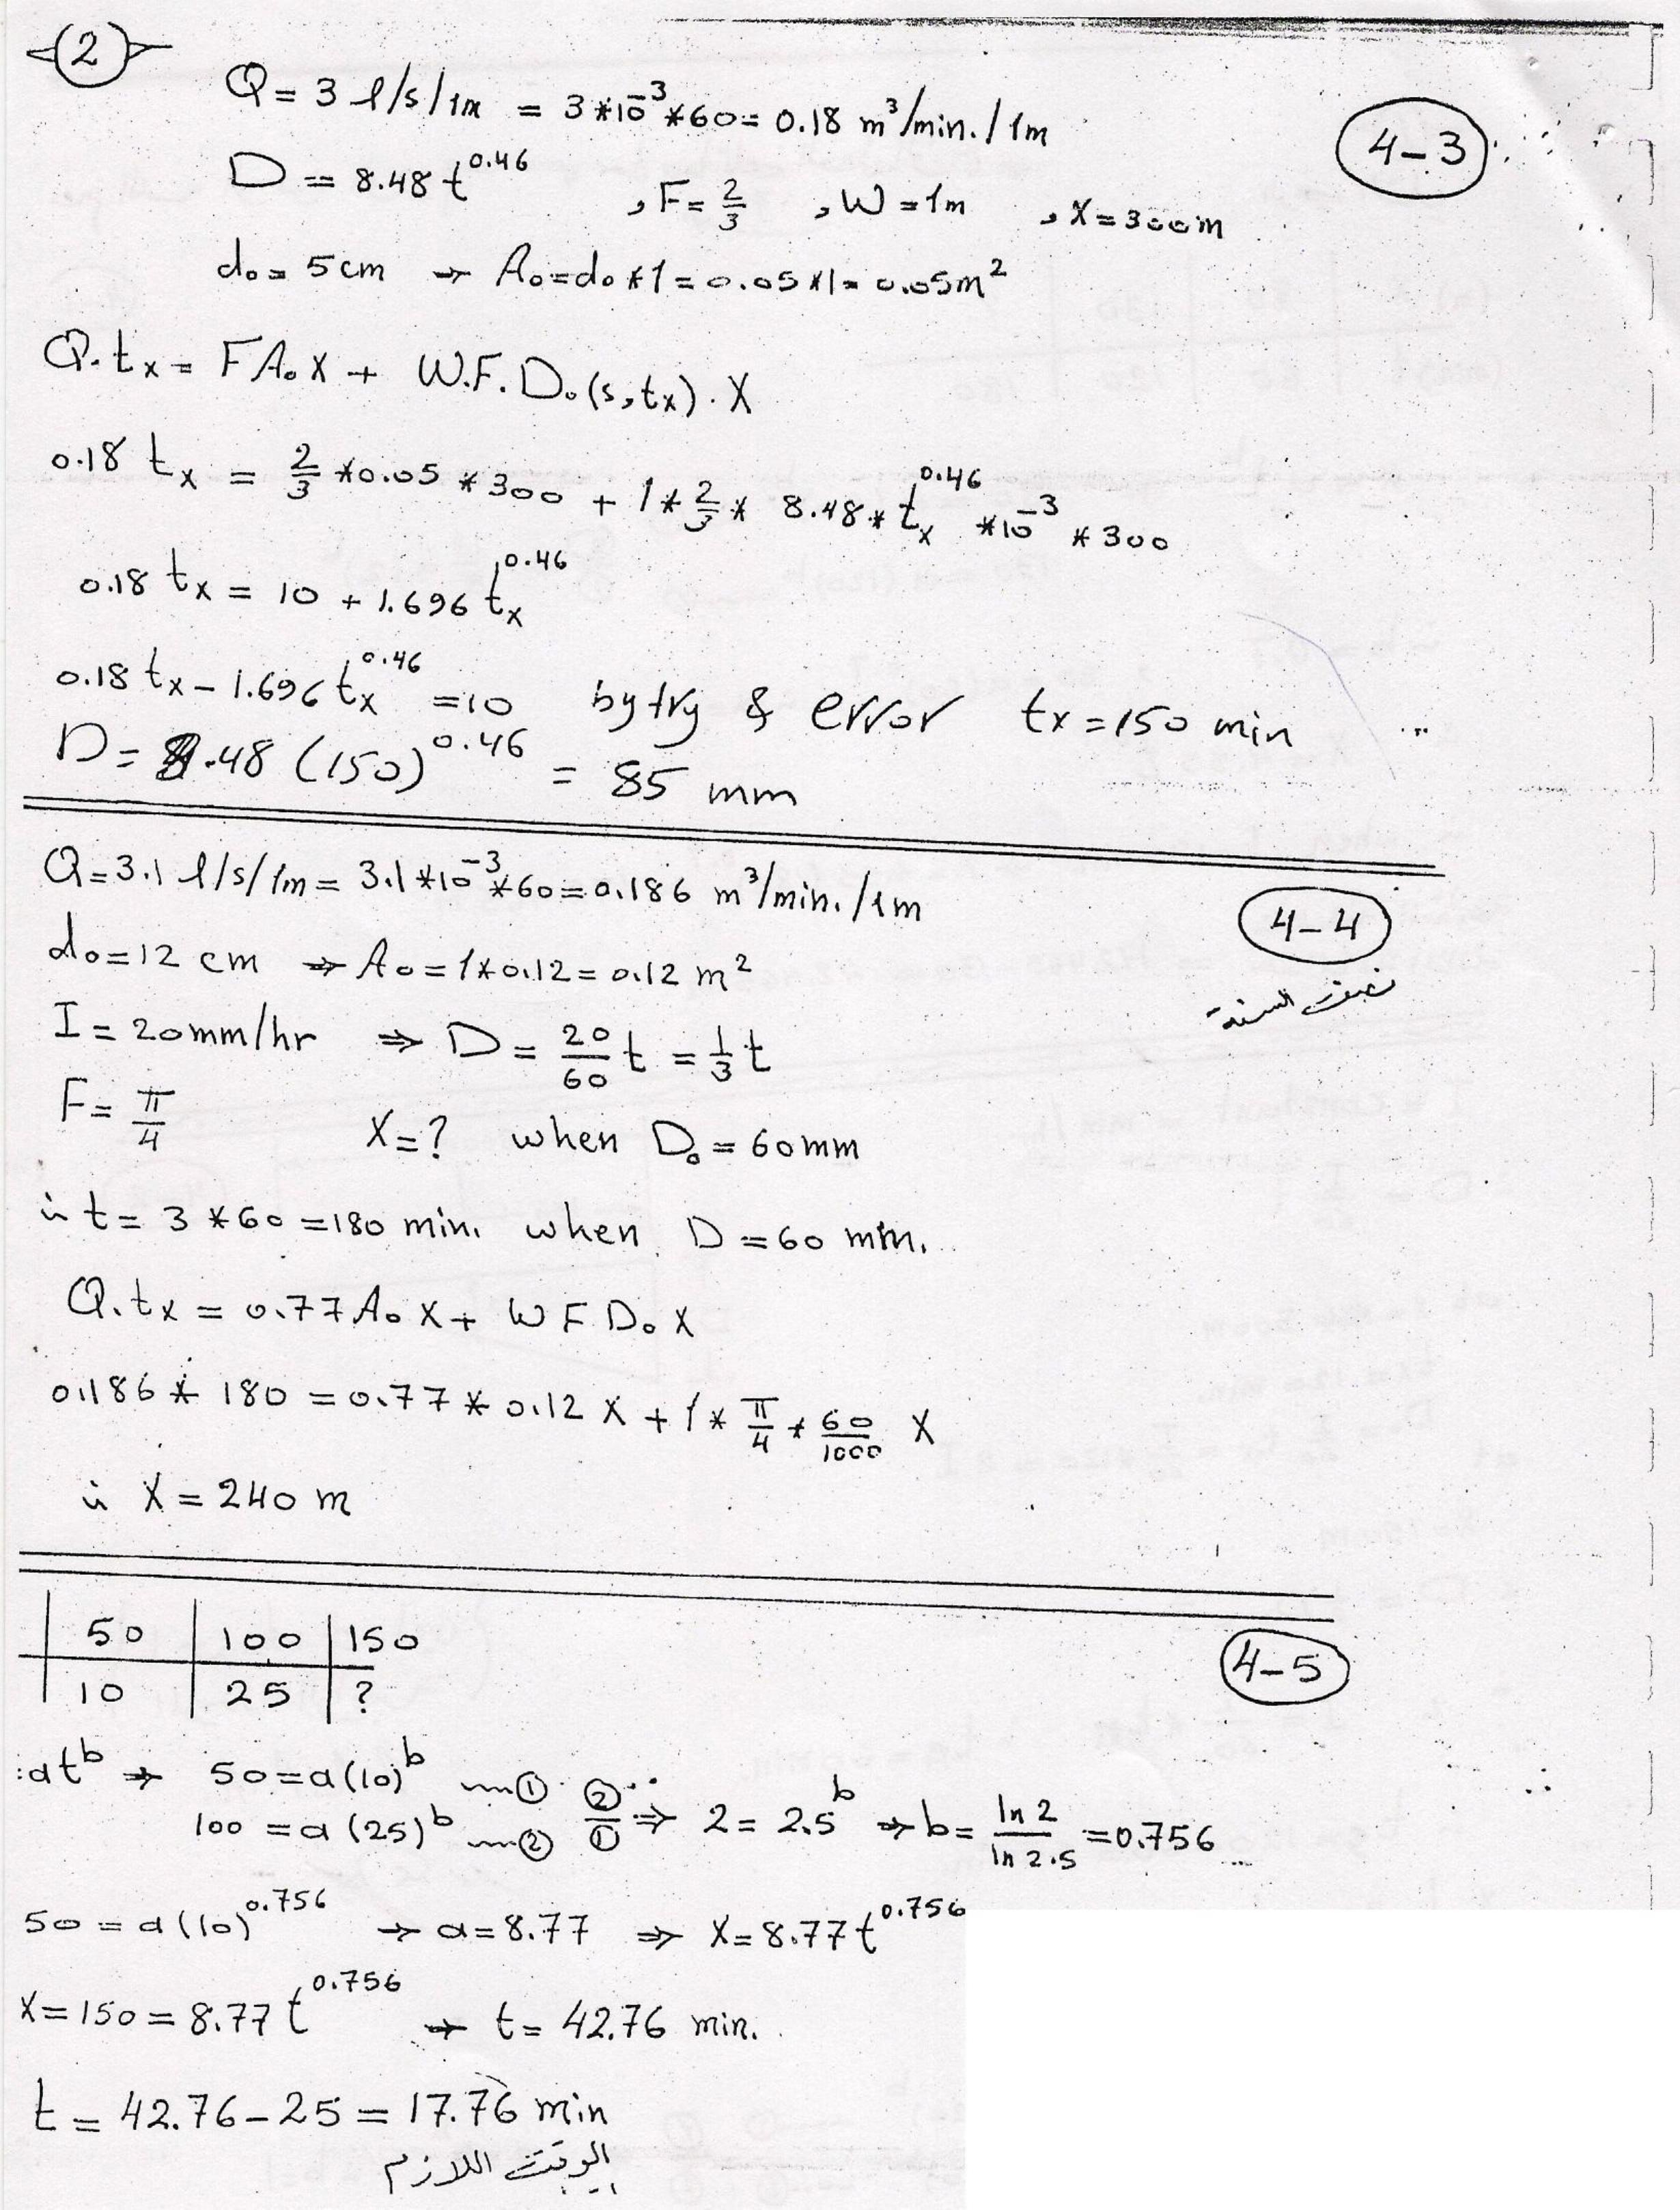 2
Q = 3 l/s/1m = 3*10^-3*60 = 0.18 m³/min./1m
4-3
D = 8.48 t^0.46 , F = 2/3 , W = 1m , X = 300m
d₀ = 5 cm → A₀ = d₀*1 = 0.05*1 = 0.05m²
Q.tₓ = F A₀ X + W.F. D₀(s,tₓ). X
0.18 tₓ = 2/3 *0.05 *300 + 1*2/3* 8.48* tₓ^0.46 *10^-3 *300
0.18 tₓ = 10 + 1.696 tₓ^0.46
0.18 tₓ - 1.696 tₓ^0.46 = 10 by try & error tx = 150 min
D = 8.48 (150)^0.46 = 85 mm
Q = 3.1 l/s/1m = 3.1*10^-3*60 = 0.186 m³/min./1m
4-4
d₀ = 12 cm ⇒ A₀ = 1*0.12 = 0.12 m²
نصف السنة
I = 20mm/hr ⇒ D = 20/60 t = 1/3 t
F = π/4 X = ? when D₀ = 60mm
∴ t = 3*60 = 180 min. when D = 60 mm.
Q.tₓ = 0.77 A₀ X + W F D₀ X
0.186 * 180 = 0.77 * 0.12 X + 1 * π/4 * 60/1000 X
∴ X = 240 m
50 | 100 | 150
4-5
10 | 25 | ?
at^b ⇒ 50 = a(10)^b ...①
100 = a(25)^b ...② ②/① ⇒ 2 = 2.5^b ⇒ b = ln 2/ln 2.5 = 0.756
50 = a(10)^0.756 → a = 8.77 ⇒ X = 8.77 t^0.756
X = 150 = 8.77 t^0.756 → t = 42.76 min.
t = 42.76 - 25 = 17.76 min
الوقت اللازم